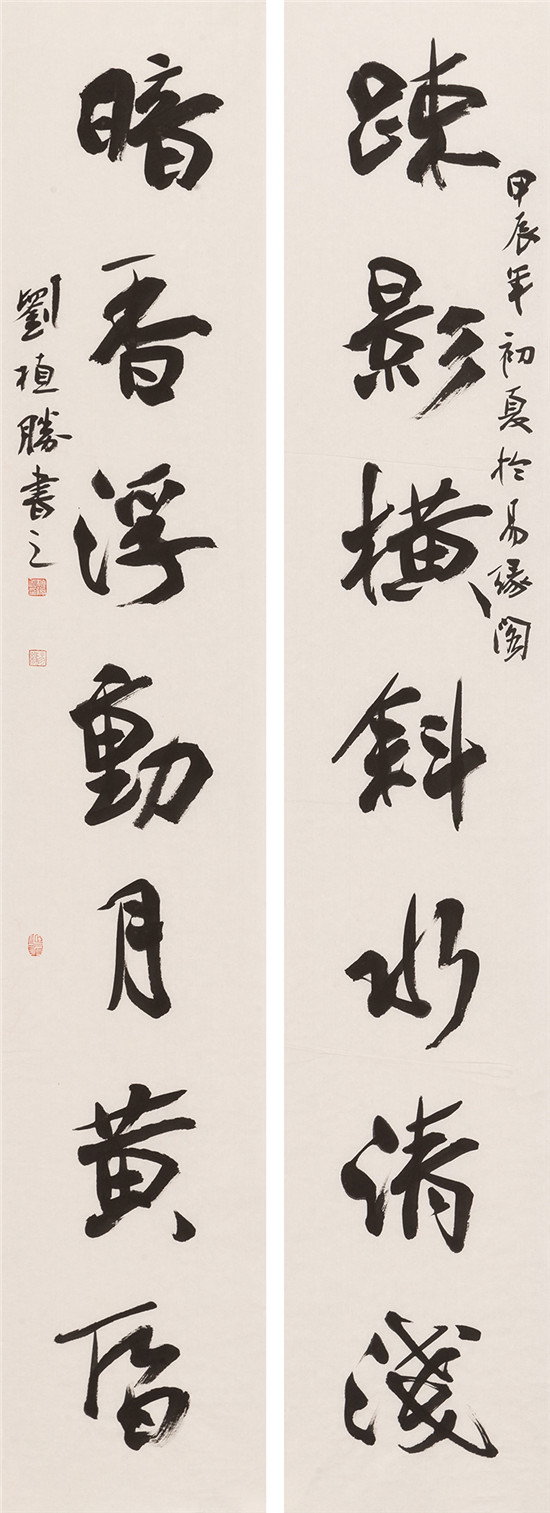 甲辰年初夏於易緣閣
踈影橫斜水清淺
暗香浮動月黃昏
劉植勝書之